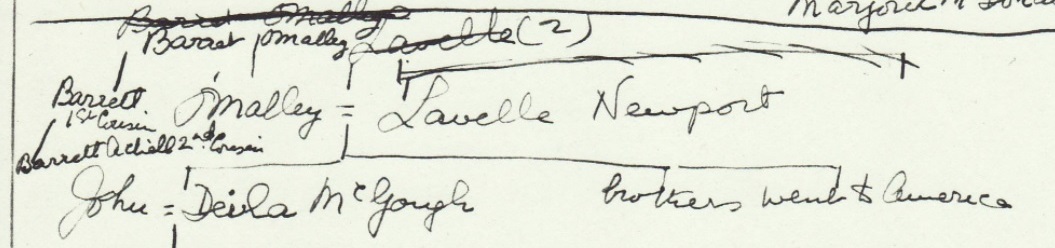 Barret Omalley
Barret Omalley Lavelle (2)
Barrett
1st Cousin
Omalley = Lavelle Newport
Barrett Achill 2nd Cousin
John = Deirla McGough
brothers went to America